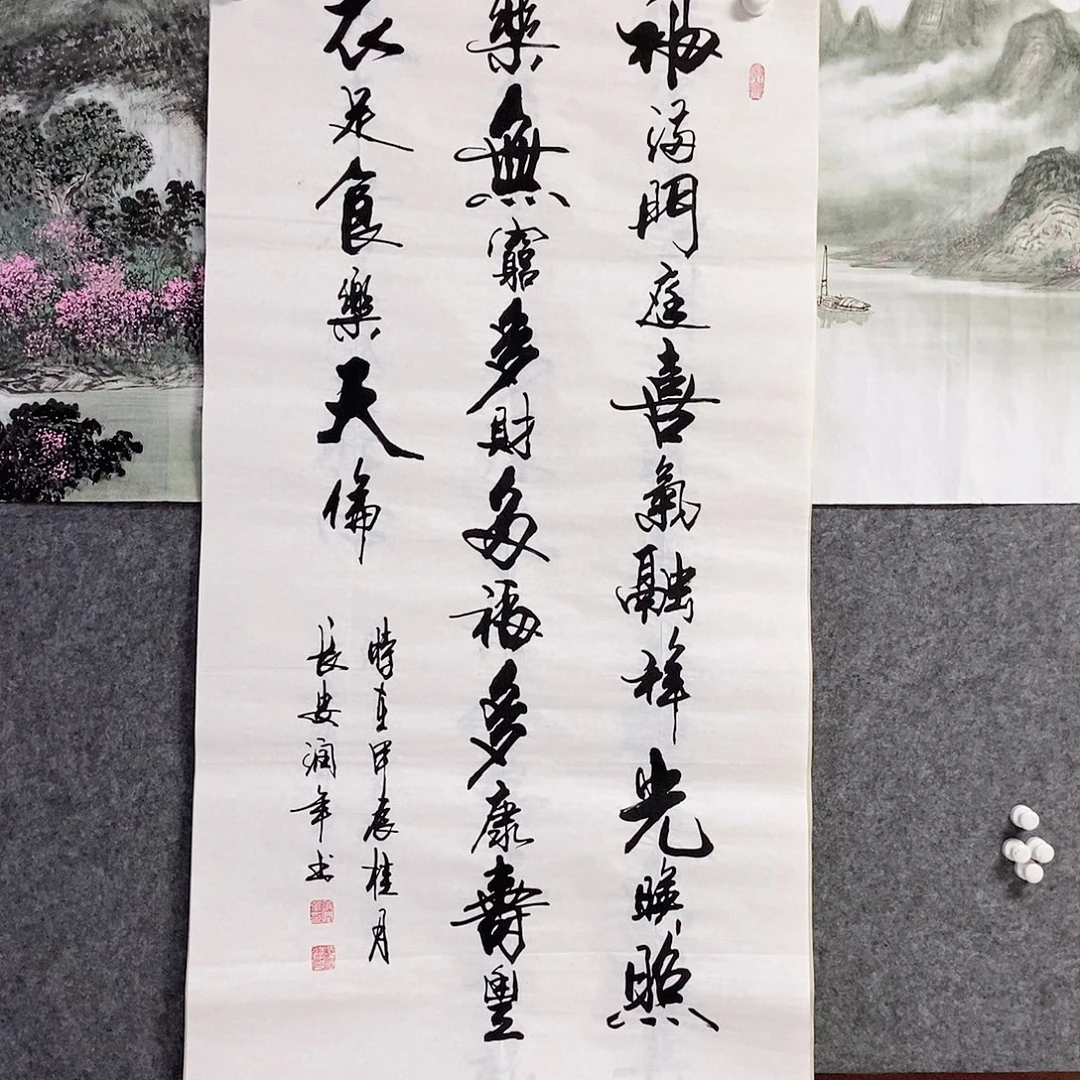 福滿門庭喜氣融祥光暎照
樂無窮多財多福多康壽豐
衣足食樂天倫
時在甲辰桂月
長安润年书